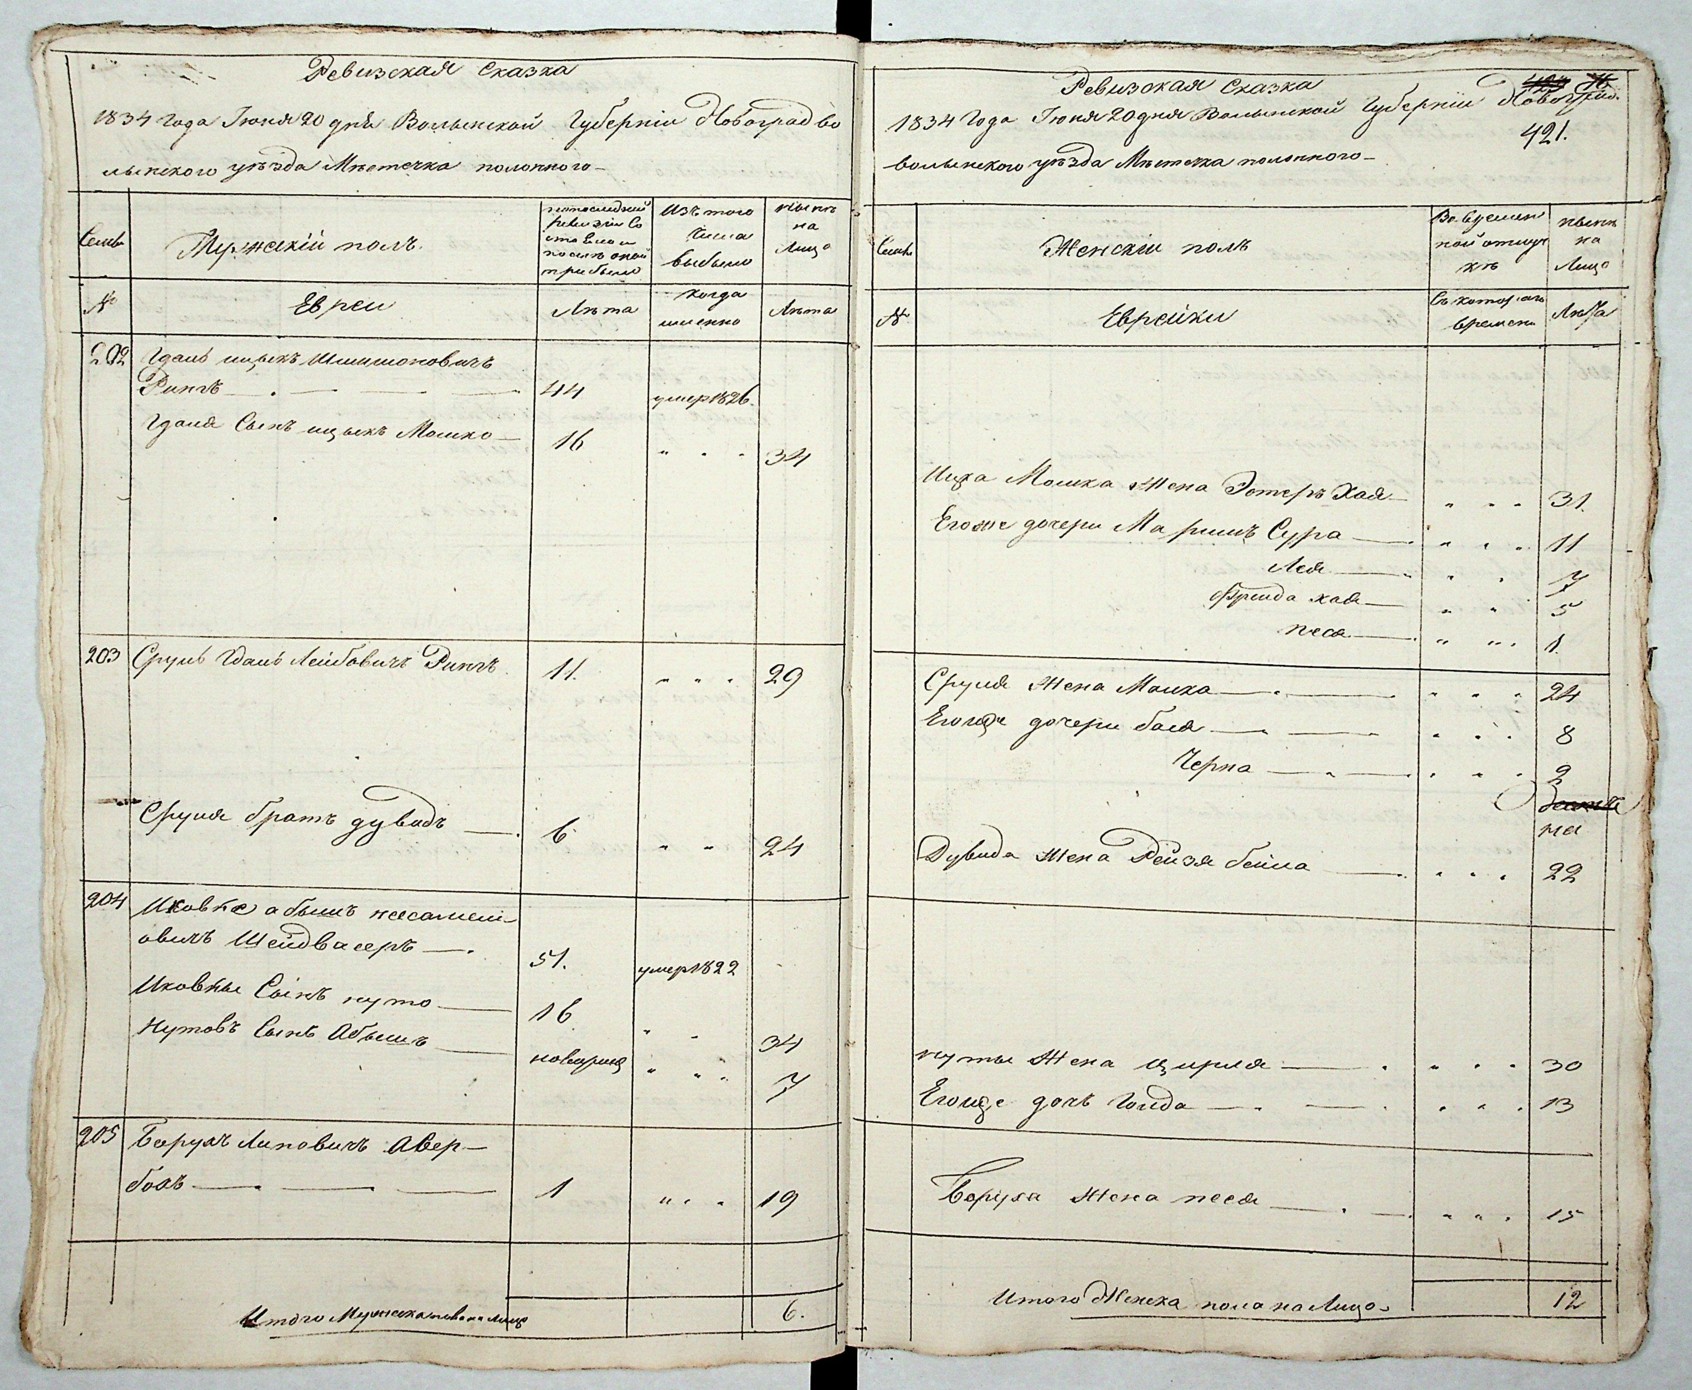 Ревизская сказка
1834 года Іюня 20 дня Волынской Губерніи Новоградво
лынского уѣзда Мѣстечка полонного
Семьи
Мужескій полъ
по последней ревизіи Состояло и после оной прибыло
Изъ того числа выбыло
нынѣ на Лицо
№
Евреи
Лѣта
когда именно
Лѣта
202 Гдаль ицыкъ Шимшоновичъ
Рингъ 44 умер 1826
Гдаля Сынъ ицыкъ Мошко 16 34
203 Сруль Гдаль Лейбовичъ Рингъ 11 29
Сруля братъ дувидъ 6 24
204 Иковка абышъ
овичъ Шейдвасеръ 51 умер 1822
Иковки Сынъ нуто 16 34
Нутовъ Сынъ Абышъ новорож 7
205 Борухъ Липовичъ Авер-
бохъ 1 19
Итого Мужеска пола на лицо 6.
Ревизская Сказка
1834 Года Іюня 20 дня Волынской Губерніи Новоград
421.
волынского уѣзда Мѣстечка полонного
Семьи
Женскій полъ
Во временной отлучкѣ
нынѣ на Лицо
№
Еврейки
Съ котораго времени
Лѣта
Ицка Мошка Жена Эстеръ Хая 31
Егоже дочери Маріимъ Сура 11
Лея 7
Фрейда хая 5
песя 1
Сруля Жена Малка 24
Егоже дочери бася 8
Черна 2
Дувида Жена Рейзя бейла 22
нуты Жена цирля 30
Егоже дочь Голда 13
Боруха Жена песя 15
Итого Женска пола на Лицо 12